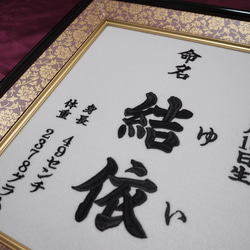 日生
命名
結依
ゆい
身長 49センチ
体重 2378グラム